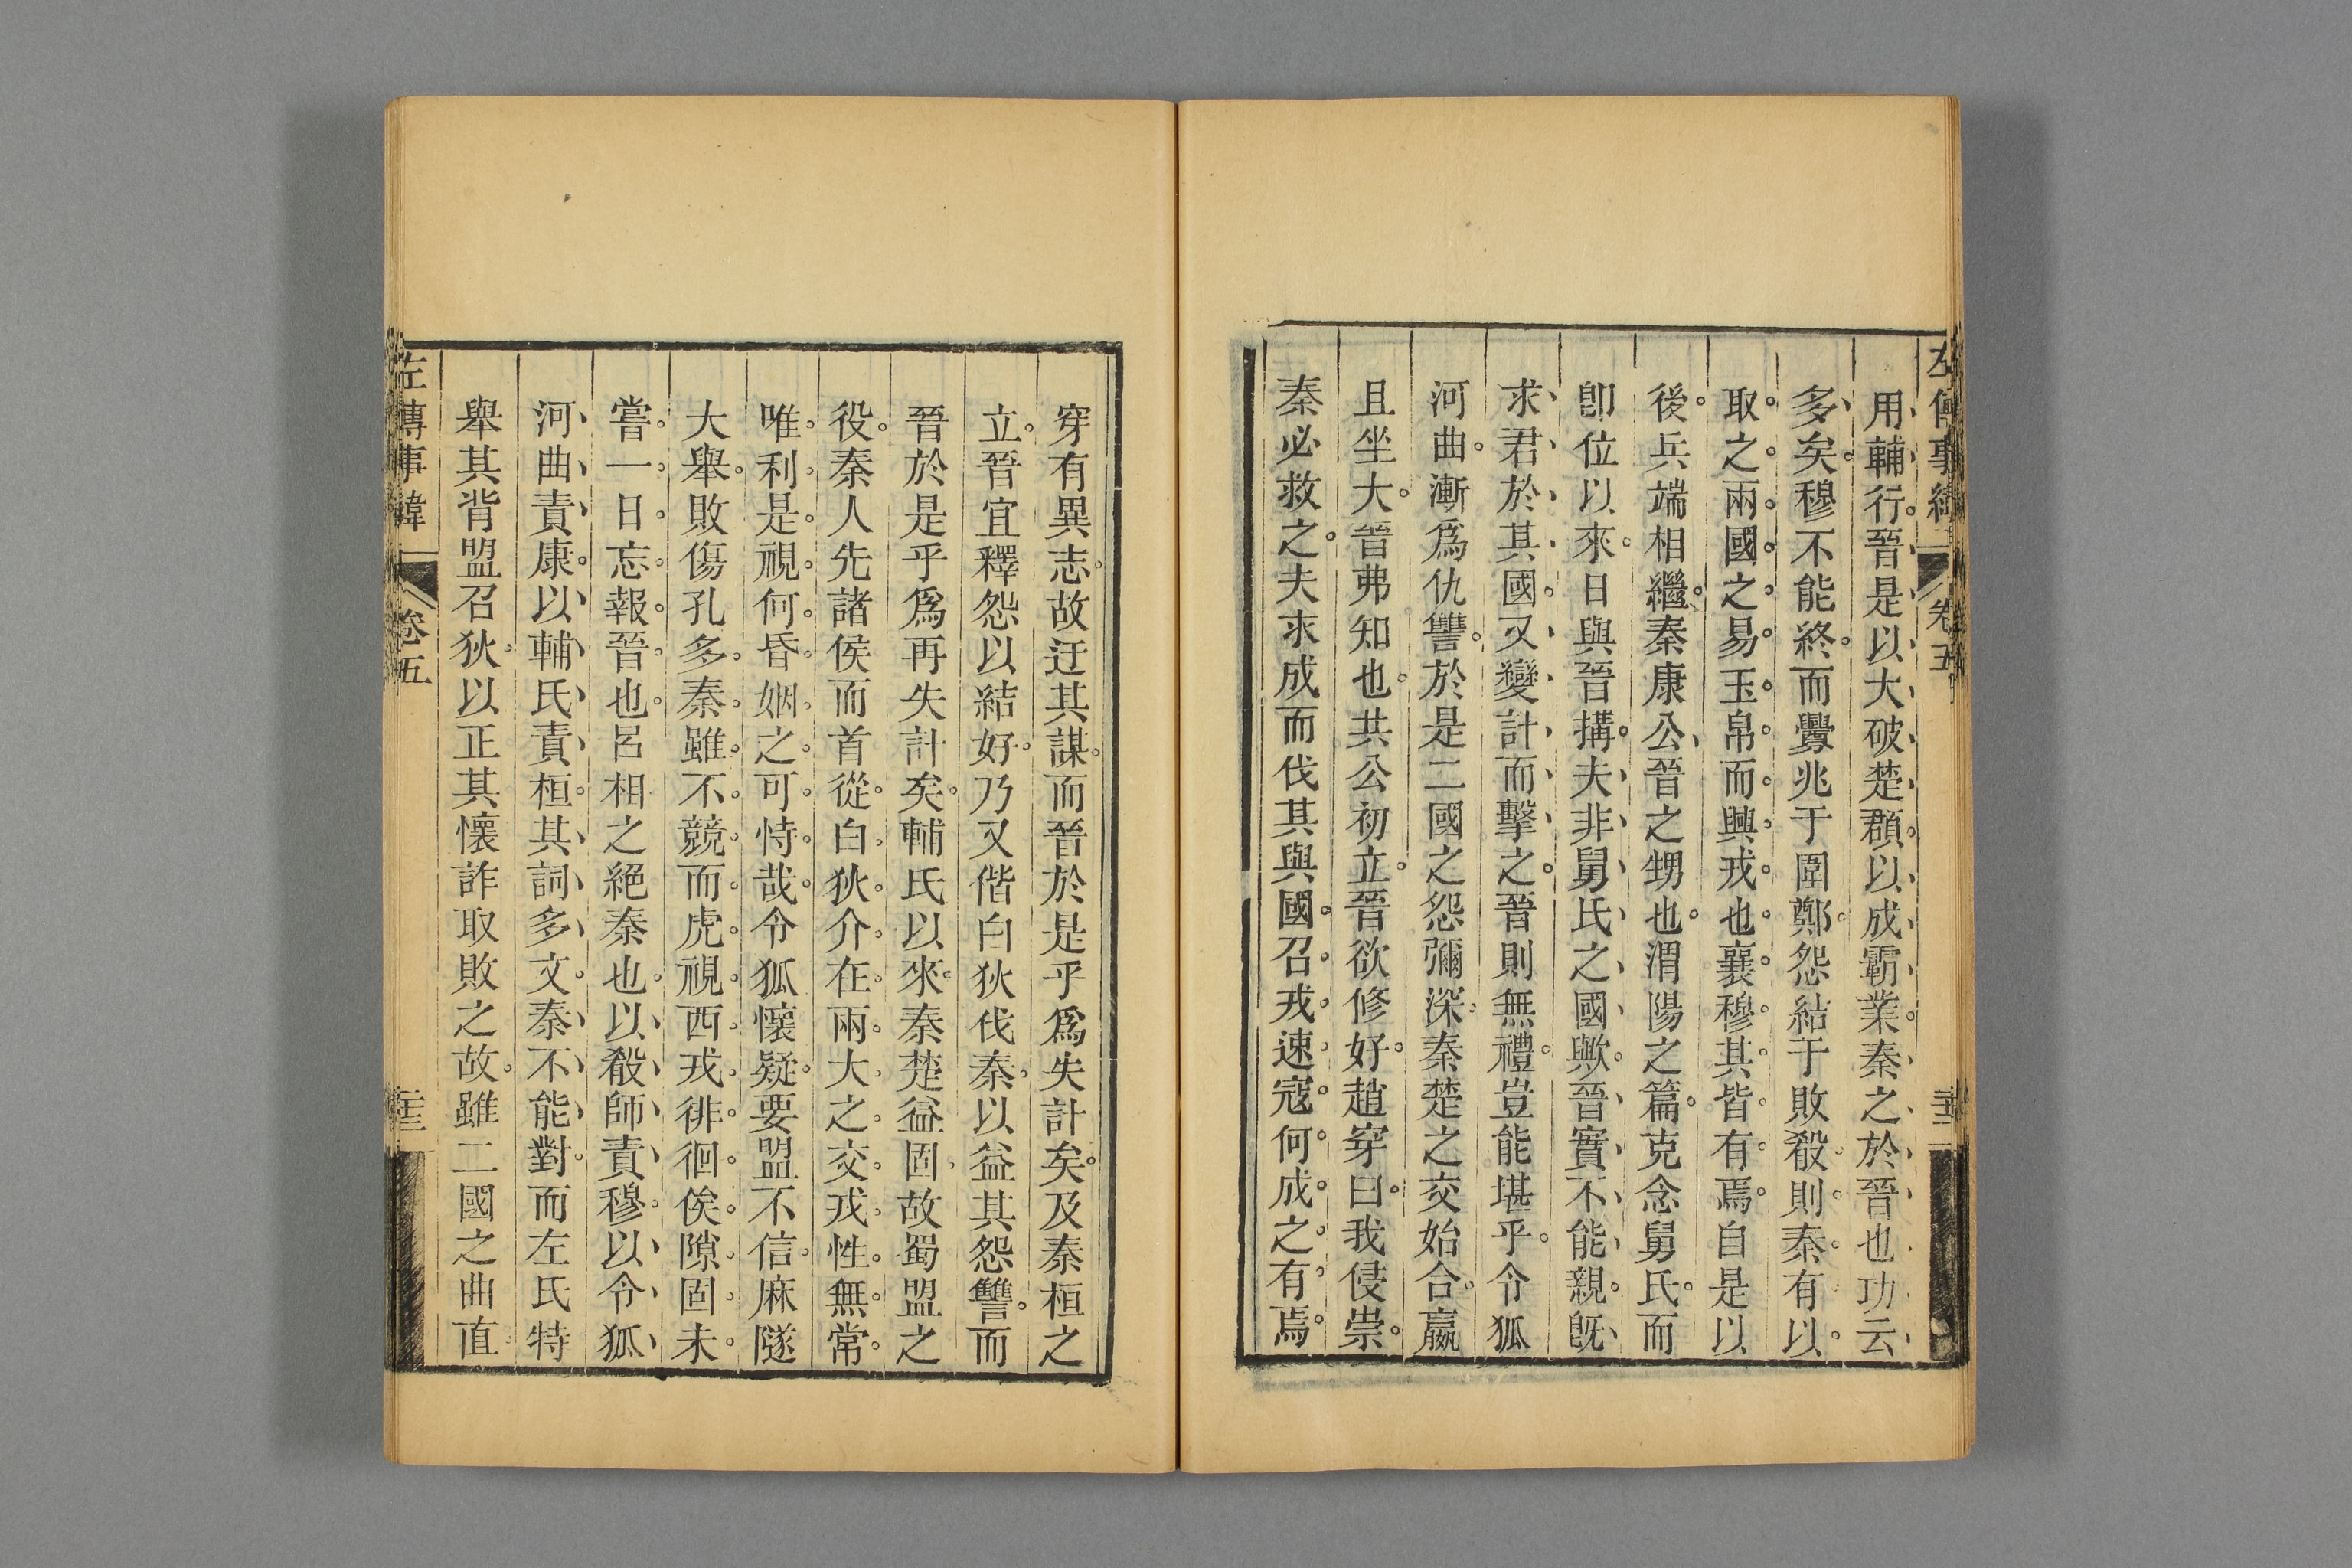 用輔行晉是以大破楚頵以成霸業秦之於晉也功云
多矣穆不能終而釁兆于圍鄭怨結于敗殽則秦有以
取之兩國之易玉帛而興戎也襄穆其皆有焉自是以
後兵端相繼秦康公晉之甥也渭陽之篇克念舅氏而
卽位以來日與晉搆夫非舅氏之國歟晉實不能親旣
求君於其國又變計而擊之晉則無禮豈能堪乎令狐
河曲漸爲仇讐於是二國之怨彌深秦楚之交始合嬴
且坐大晉弗知也共公初立晉欲修好趙穿曰我侵崇
秦必救之夫求成而伐其與國召戎速寇何成之有焉
穿有異志故迂其謀而晉於是乎爲失計矣及秦桓之
立晉宜釋怨以結好乃又偕白狄伐秦以益其怨讐而
晉於是乎爲再失計矣輔氏以來秦楚益固故蜀盟之
役秦人先諸侯而首從白狄介在兩大之交戎性無常
唯利是視何昏姻之可恃哉令狐懷疑要盟不信麻隧
大舉敗傷孔多秦雖不競而虎視西戎徘徊俟隙固未
嘗一日忘報晉也呂相之絕秦也以殽師責穆以令狐
河曲責康以輔氏責桓其詞多文秦不能對而左氏特
舉其背盟召狄以正其懷詐取敗之故雖二國之曲直
左傳事緯
卷五